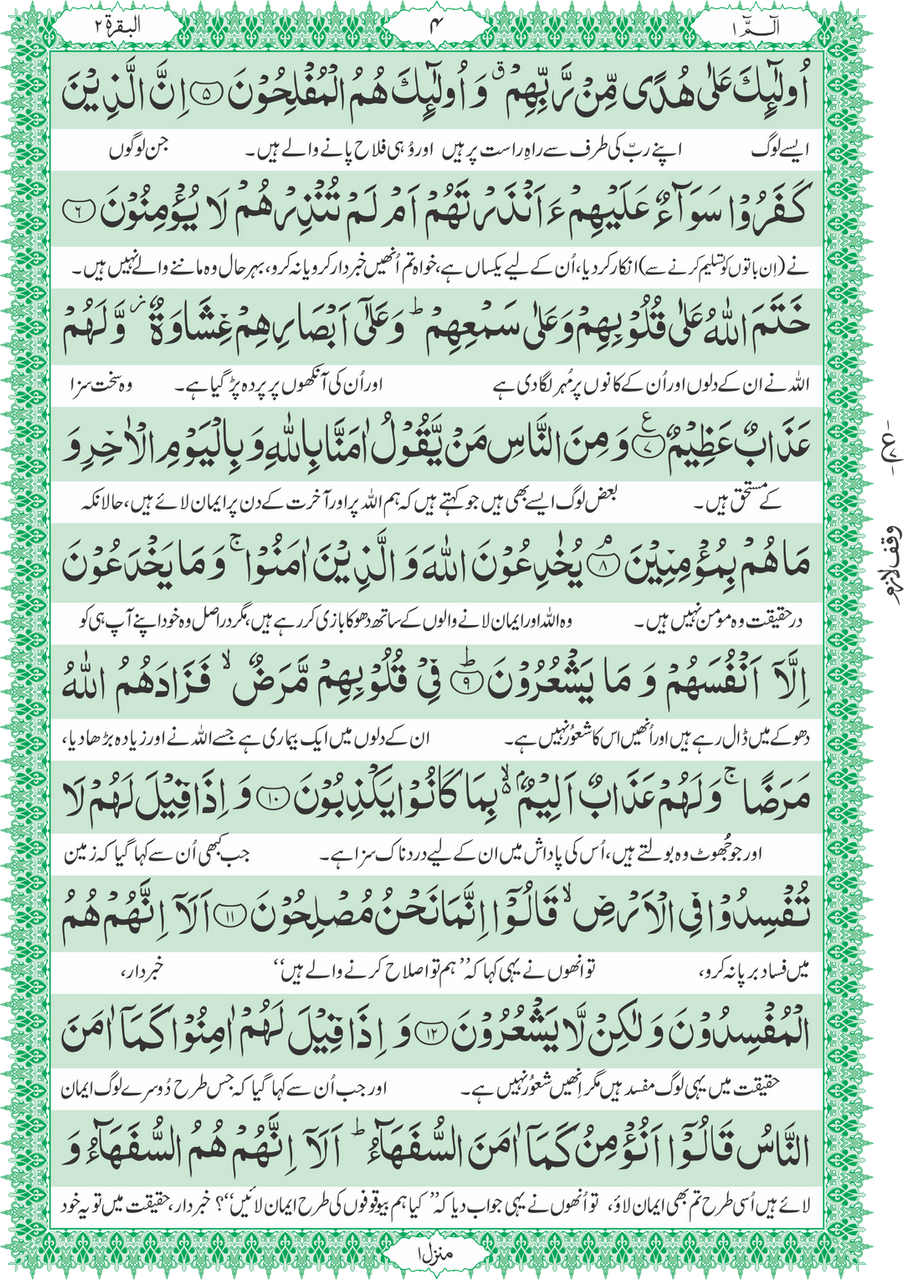 الٓـمّٓ ۱
۴
البقرة ۲
اُولٰٓئِكَ عَلٰى هُدًى مِّنْ رَّبِّهِمْ ۗ وَ اُولٰٓئِكَ هُمُ الْمُفْلِحُوْنَ ۝۵ اِنَّ الَّذِيْنَ
ایسے لوگ اپنے ربّ کی طرف سے راہِ راست پر ہیں اور وُہی فلاح پانے والے ہیں۔ جن لوگوں
كَفَرُوْا سَوَآءٌ عَلَيْهِمْ ءَاَنْذَرْتَهُمْ اَمْ لَمْ تُنْذِرْهُمْ لَا يُؤْمِنُوْنَ ۝۶
نے (اِن باتوں کو تسلیم کرنے سے) انکار کردیا، اُن کے لیے یکساں ہے، خواہ تم اُنھیں خبردار کرو یا نہ کرو، بہرحال وہ ماننے والے نہیں ہیں۔
خَتَمَ اللّٰهُ عَلٰى قُلُوْبِهِمْ وَ عَلٰى سَمْعِهِمْ ؕ وَ عَلٰٓى اَبْصَارِهِمْ غِشَاوَةٌ ؗ وَّ لَهُمْ
اللہ نے ان کے دلوں اور اُن کے کانوں پر مُہر لگادی ہے اور اُن کی آنکھوں پر پردہ پڑ گیا ہے۔ وہ سخت سزا
عَذَابٌ عَظِيْمٌ ۝۷ ع وَ مِنَ النَّاسِ مَنْ يَّقُوْلُ اٰمَنَّا بِاللّٰهِ وَ بِالْيَوْمِ الْاٰخِرِ وَ
کے مستحق ہیں۔ بعض لوگ ایسے بھی ہیں جو کہتے ہیں کہ ہم اللہ پر اور آخرت کے دن پر ایمان لائے ہیں، حالانکہ
مَا هُمْ بِمُؤْمِنِيْنَ ۝۸ۘ يُخٰدِعُوْنَ اللّٰهَ وَ الَّذِيْنَ اٰمَنُوْا ۚ وَ مَا يَخْدَعُوْنَ
وقف لازم
درحقیقت وہ مومن نہیں ہیں۔ وہ اللہ اور ایمان لانے والوں کے ساتھ دھوکا بازی کر رہے ہیں، مگر دراصل وہ خود اپنے آپ ہی کو
اِلَّاۤ اَنْفُسَهُمْ وَ مَا يَشْعُرُوْنَ ۝۹ؕ فِيْ قُلُوْبِهِمْ مَّرَضٌ ۙ فَزَادَهُمُ اللّٰهُ
دھوکے میں ڈال رہے ہیں اور اُنھیں اس کا شعوُر نہیں ہے۔ ان کے دلوں میں ایک بیماری ہے جسے اللہ نے اور زیادہ بڑھا دیا،
مَرَضًا ۚ وَ لَهُمْ عَذَابٌ اَلِيْمٌۢ ۙ بِمَا كَانُوْا يَكْذِبُوْنَ ۝۱۰ وَ اِذَا قِيْلَ لَهُمْ لَا
اور جو جُھوٹ وہ بولتے ہیں، اُس کی پاداش میں ان کے لیے دردناک سزا ہے۔ جب کبھی اُن سے کہا گیا کہ زمین
تُفْسِدُوْا فِي الْاَرْضِ ۙ قَالُوْۤا اِنَّمَا نَحْنُ مُصْلِحُوْنَ ۝۱۱ اَلَاۤ اِنَّهُمْ هُمُ
میں فساد برپا نہ کرو، تو انھوں نے یہی کہا کہ ”ہم تو اصلاح کرنے والے ہیں“ خبردار،
الْمُفْسِدُوْنَ وَ لٰكِنْ لَّا يَشْعُرُوْنَ ۝۱۲ وَ اِذَا قِيْلَ لَهُمْ اٰمِنُوْا كَمَاۤ اٰمَنَ
حقیقت میں یہی لوگ مفسد ہیں مگر اِنھیں شعوُر نہیں ہے۔ اور جب اُن سے کہا گیا کہ جس طرح دُوسرے لوگ ایمان
النَّاسُ قَالُوْۤا اَنُؤْمِنُ كَمَاۤ اٰمَنَ السُّفَهَآءُ ؕ اَلَاۤ اِنَّهُمْ هُمُ السُّفَهَآءُ وَ
لائے ہیں اُسی طرح تم بھی ایمان لاؤ، تو اُنھوں نے یہی جواب دیا کہ ”کیا ہم بیوقوفوں کی طرح ایمان لائیں“؟ خبردار، حقیقت میں تو یہ خود
منزل ۱